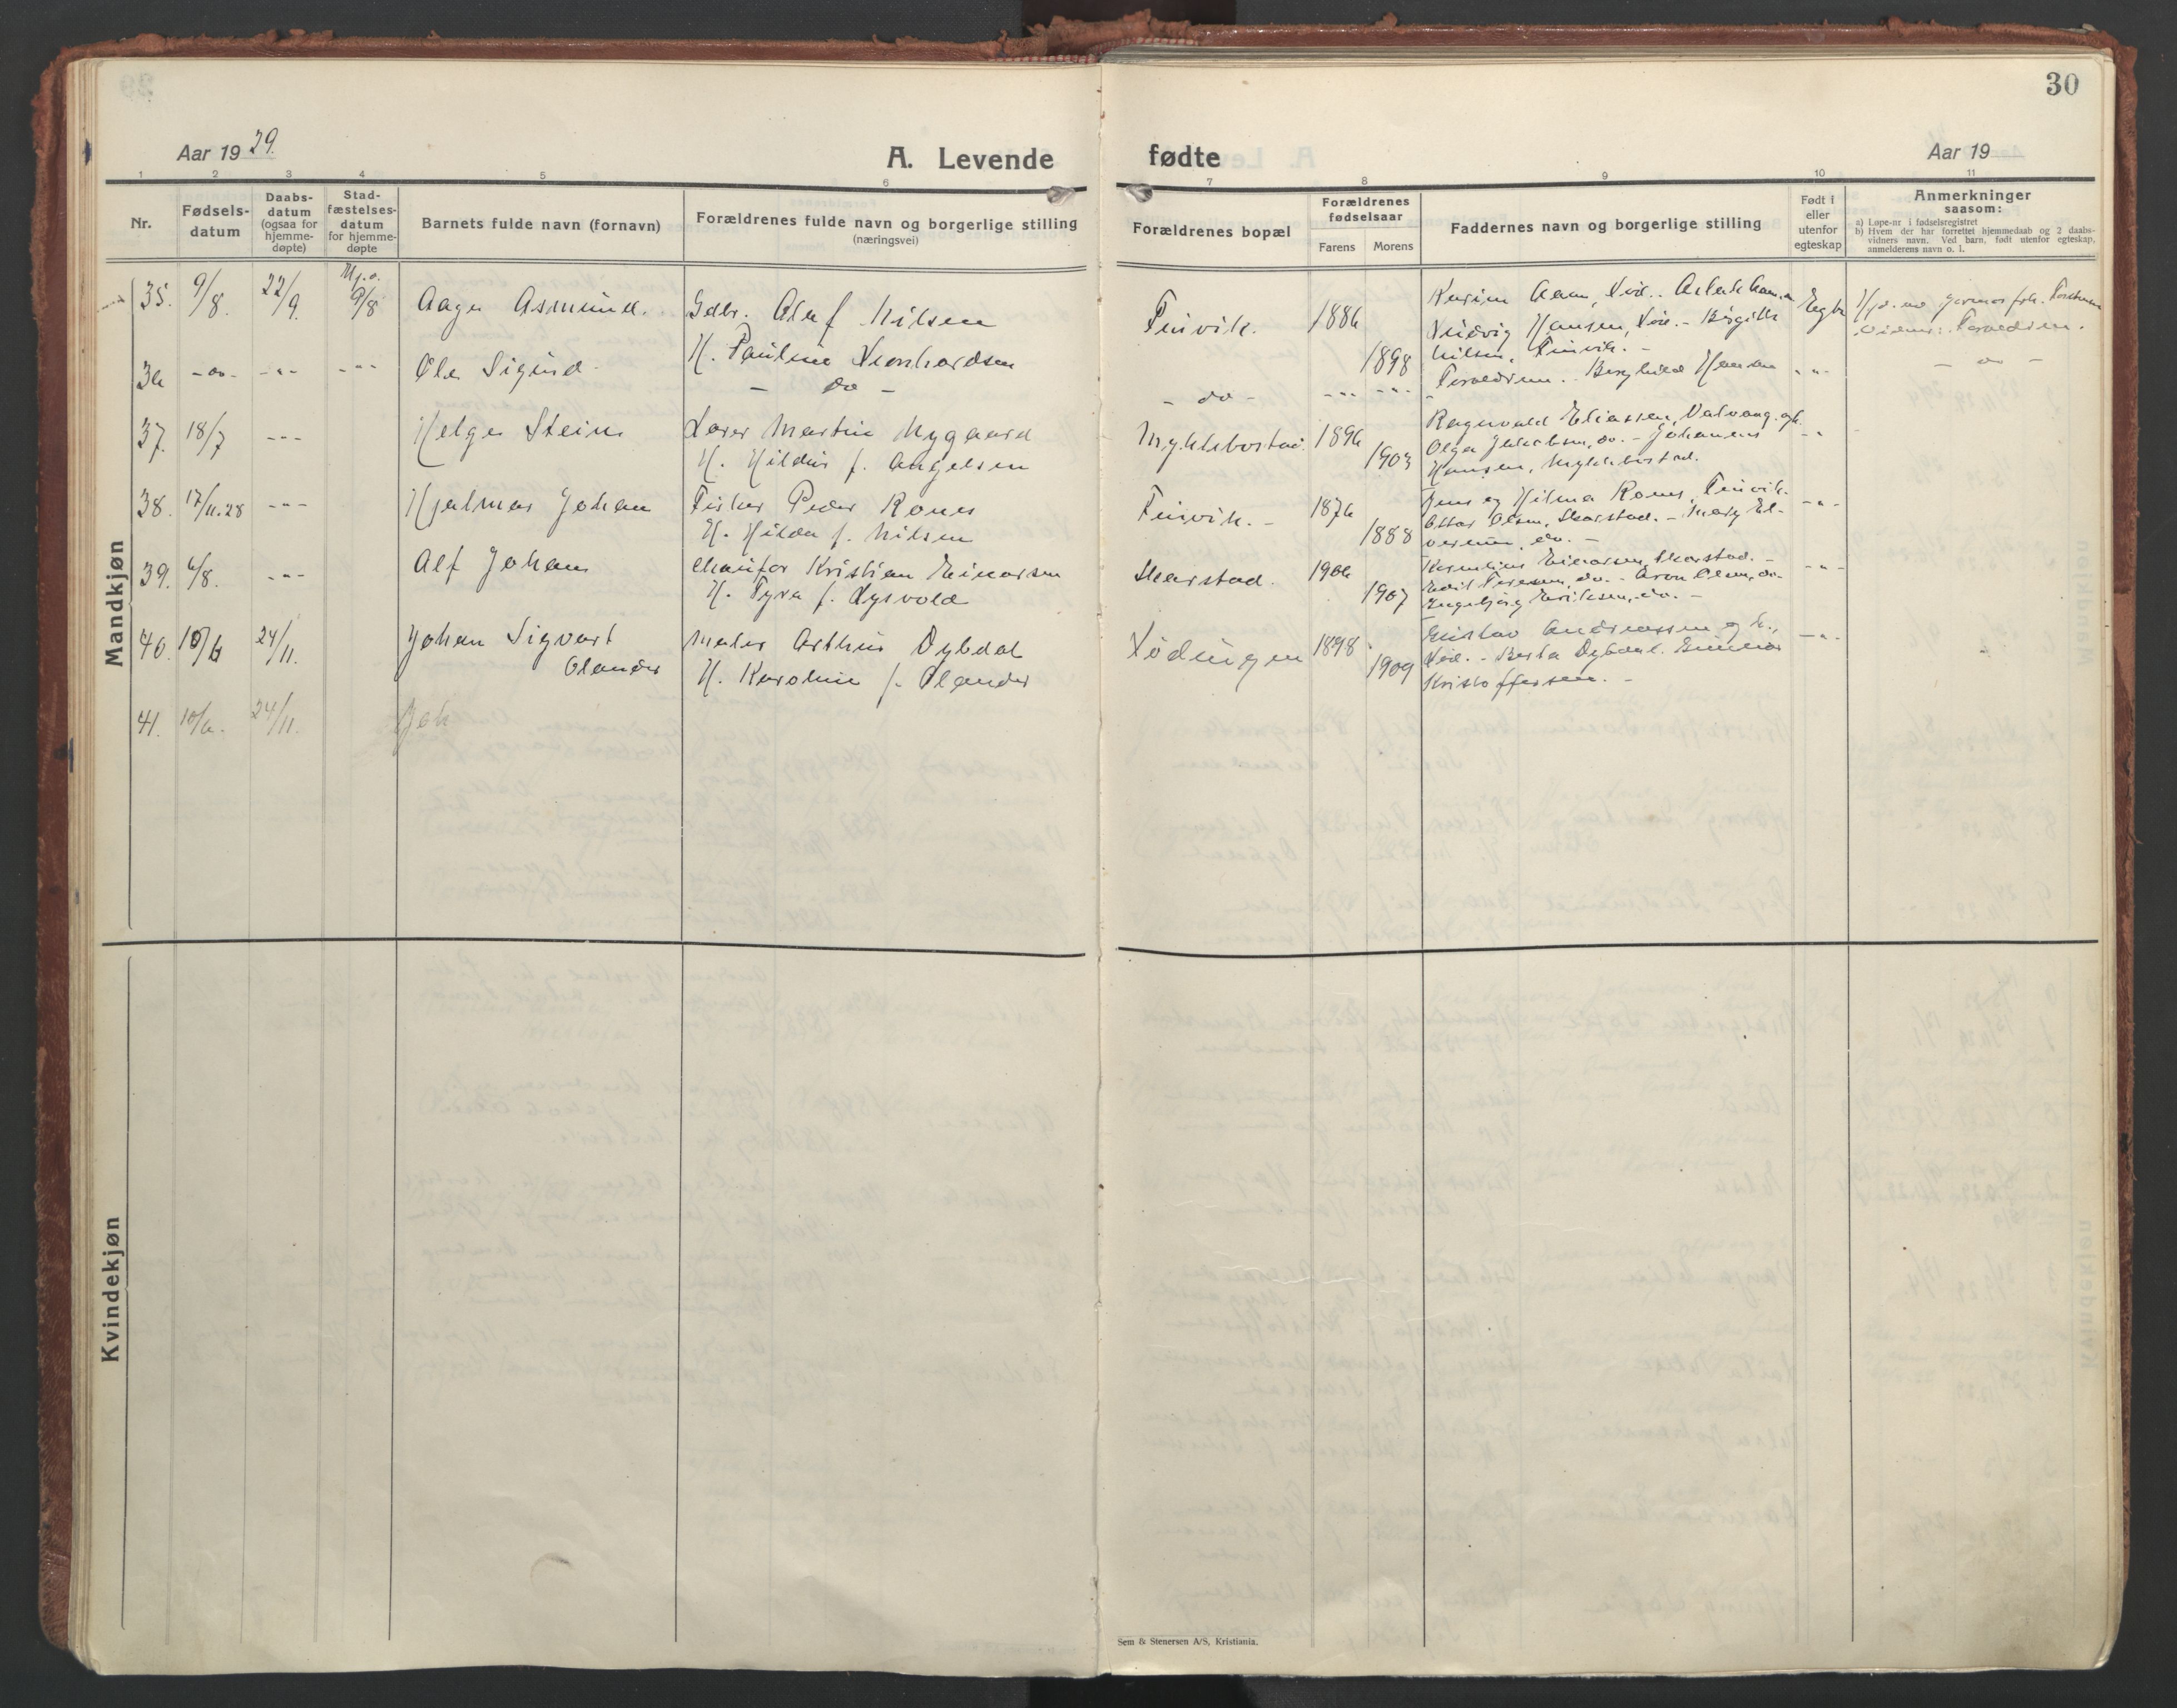 30
Aar 1929.
A. Levende
fødte
Aar 19
1 2 3 4 5 6 7 8 9 10 11
Nr.
Fødsels-
datum
Daabs-
datum
(ogsaa for
hjemme-
døpte)
Stad-
fæstelses-
datum
for hjemme-
døpte
Barnets fulde navn (fornavn)
Forældrenes fulde navn og borgerlige stilling
(næringsvei)
Forældrenes bopæl
Forældrenes
fødselsaar
Farens Morens
Faddernes navn og borgerlige stilling
Født i
eller
utenfor
egteskap
Anmerkninger
saasom:
a) Løpe-nr i fødselsregistret
b) Hvem der har forrettet hjemmedaab og 2 daabs-
vidners navn. Ved barn, født utenfor egteskap,
anmelderens navn o. l.
Mandkjøn
35. 9/8. 22/9. Hj.d. 9/8 Aage Asmund. Gdbr. Olaf Nilsen
H. Pauline Leonhardsen
Finvik. 1886 1898
Ludvig Hansen, Lød. - Birgitte
Nilsen, Finvik. -
36 -do- -"- -"- Ole Sigurd - do -
- do - -"- -"-
Foreldrene. Borghild Hansen -"- - do -
37. 18/7 -"- Helge Stein Lærer Martin Nygaard
H. Hildur f. Angelsen
Myklebostad. 1896 1903
Ragnvald Eliassen, Valvaag. og h.
Olga Jakobsen, do. - Johannes
Hansen, Myklebostad. -"-
38. 17/11.28 -"- Hjalmar Johan Fisker Peder Rones
H. Hilda f. Nilsen
Finvik. - 1876 1888
Jens og Hilma Rones, Finvik.
Ottar Olsen, Skarstad. - Mary El-
verum, do. - -"-
39. 6/8. -"- Alf Johan Chaufør Kristian Einarsen
H. Fyra f. Lysvold
Skarstad. 1906 1907
Kornelius Einarsen, Skarstad. -
do. - Aron Olsen, do.
Engebjørg Eriksen, do. - -"-
40. 10/6 24/11. Johan Sigvart
Olander
Maler Arthur Dybdal
H. Karoline f. Olander
Lødingen 1898 1909
Gustav Andreassen og h.,
Lød. - Berta Dybdal. Gunnar
Kristoffersen. - -"-
41. 10/6. 24/11. Joh
Kvindekjøn
Sem & Stenersen A/S, Kristiania.